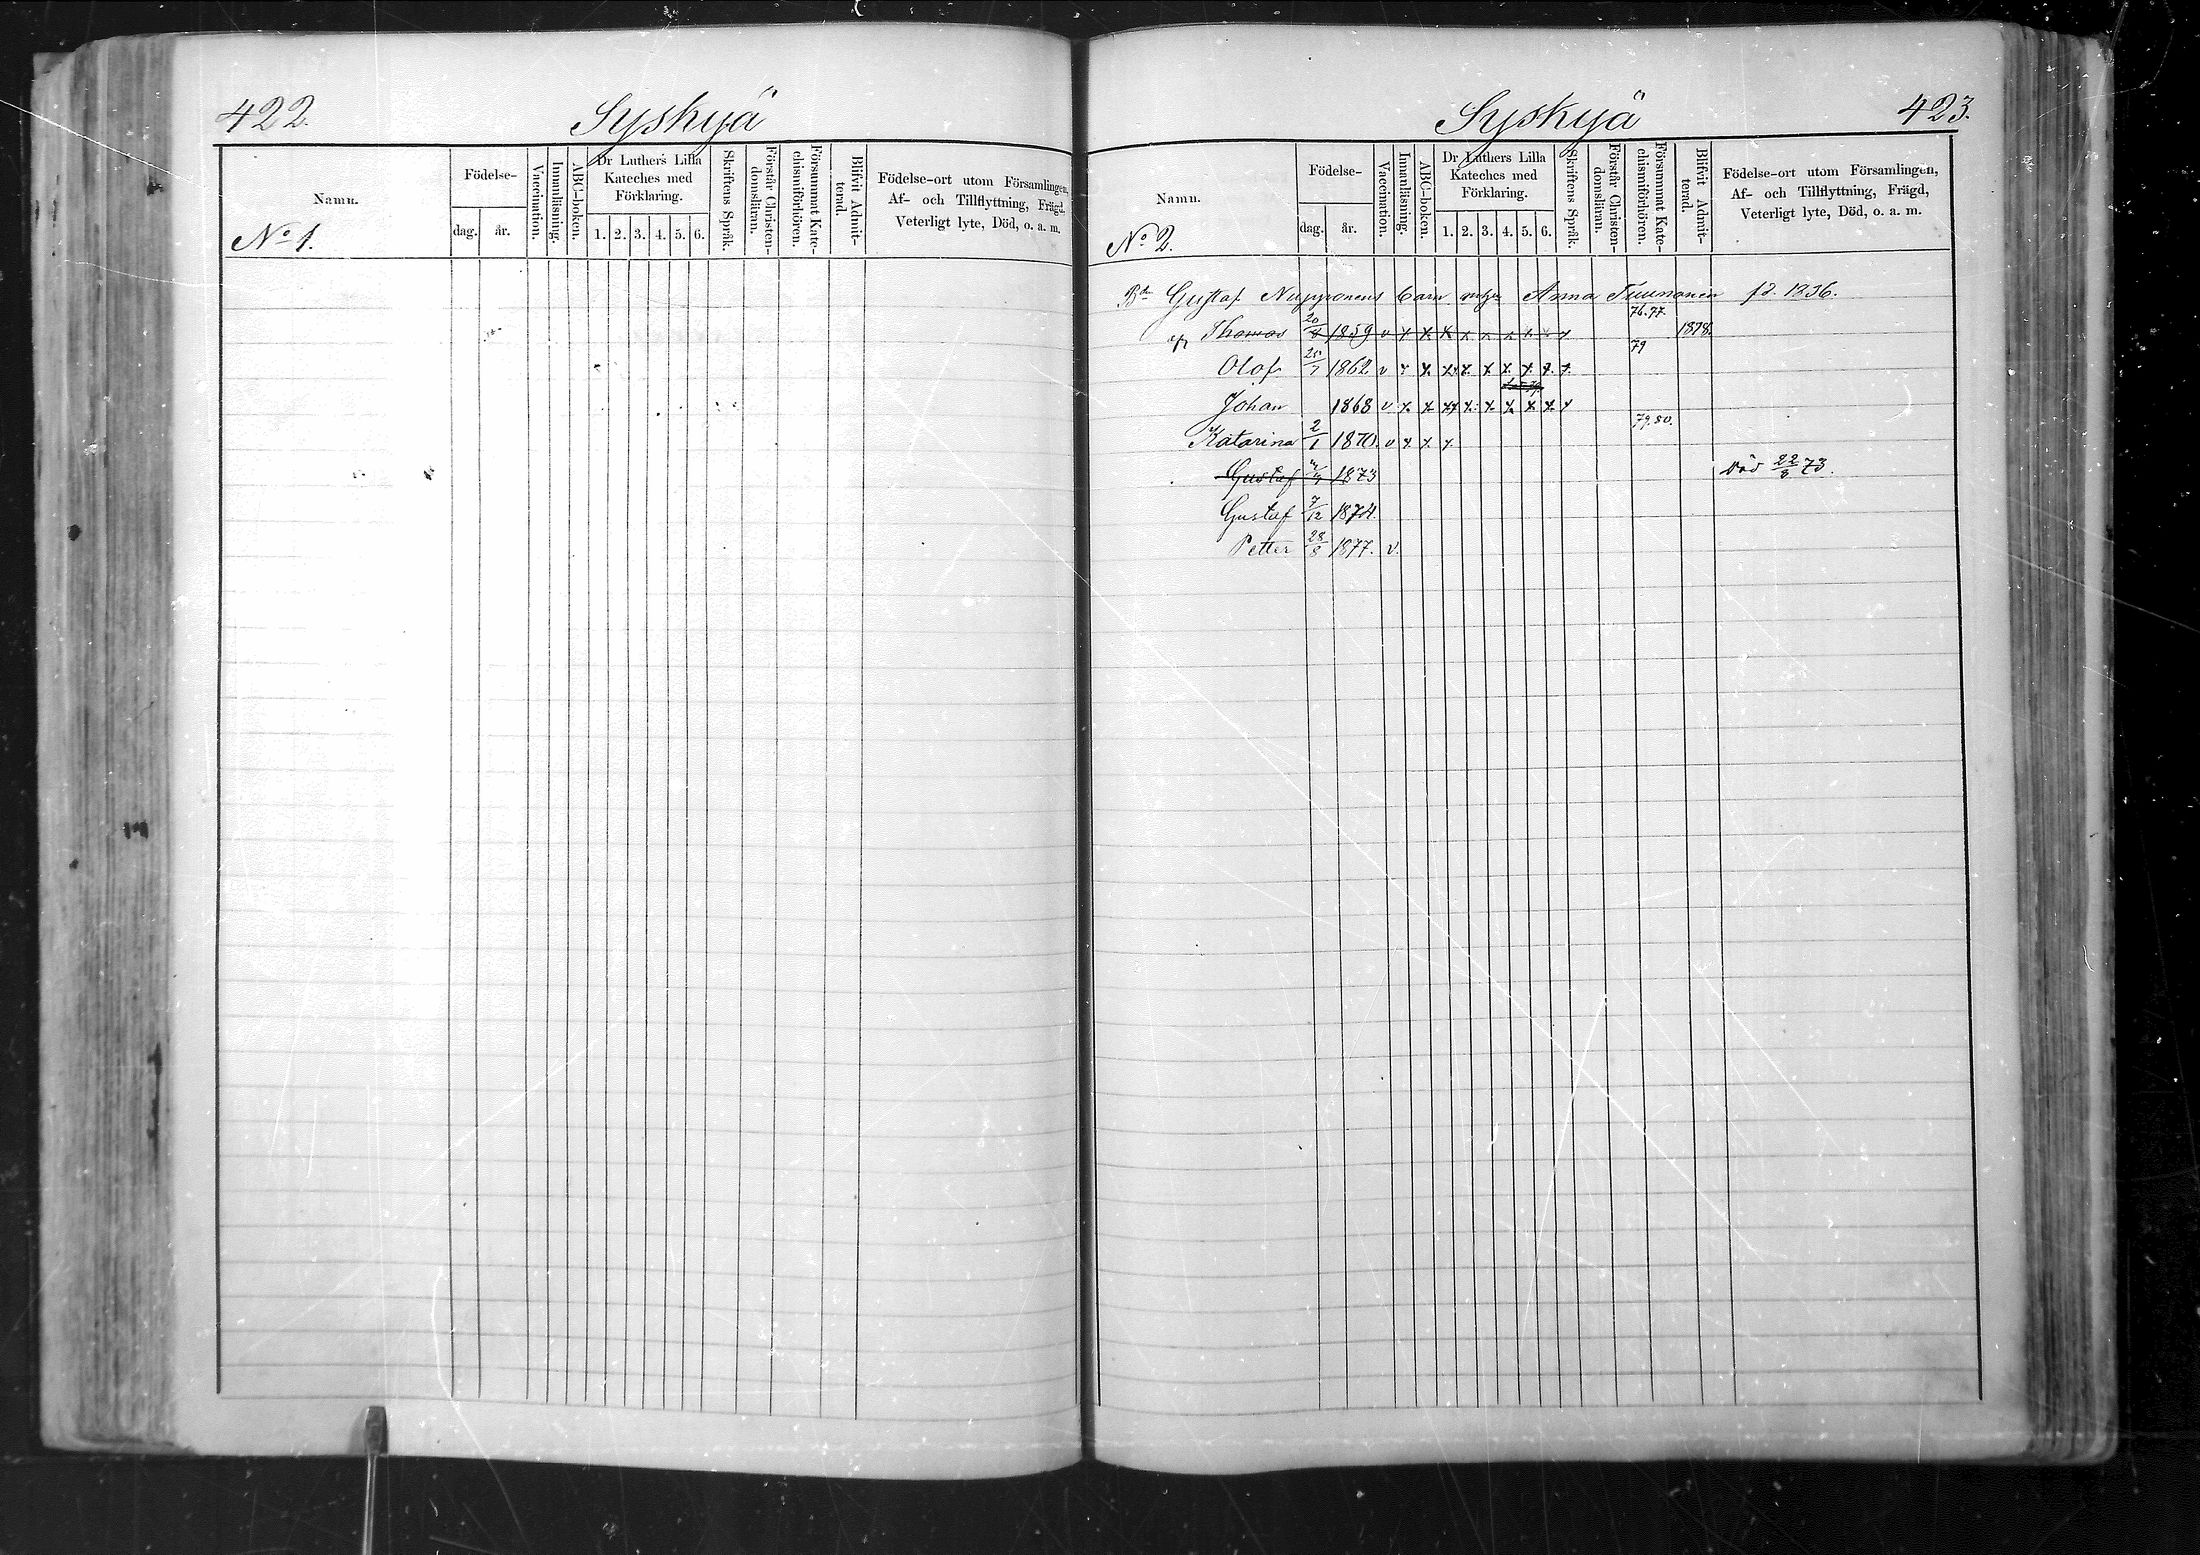 422.
Syskyä
Namn.
No 1.
Födelse-
dag.
år.
Vaccination.
Innanläsning.
ABC-boken.
Dr Luthers Lilla
Kateches med
Förklaring.
1. 2. 3. 4. 5. 6.
Skriftens Språk.
Förstår Christen-
domsläran.
Försummat Kate-
chismiförhören.
Blifvit Admit-
terad.
Födelse-ort utom Församlingen,
Af- och Tillflyttning, Frägd,
Veterligt lyte, Död, o. a. m.
Syskyä
423.
Namn.
No 2.
Födelse-
dag.
år.
Vaccination.
Innanläsning.
ABC-boken.
Dr Luthers Lilla
Kateches med
Förklaring.
1. 2. 3. 4. 5. 6.
Skriftens Språk.
Förstår Christen-
domsläran.
Försummat Kate-
chismiförhören.
Blifvit Admit-
terad.
Födelse-ort utom Församlingen,
Af- och Tillflyttning, Frägd,
Veterligt lyte, Död, o. a. m.
Bd Gustaf Nupponens barn Anna Tuunanen fd. 1836.
76.77.
Thomas 1859 v x x x x x x x x x 1878.
79
Olof 1862 v x x xx x x x x x x
Johan 1868 v x x xx x x x x x x
79.80.
Katarina 2/1 1870. v x x x
Gustaf 1873 Död 22/8 73.
Gustaf 7/12 1874.
Petter 28/8 1877. v.